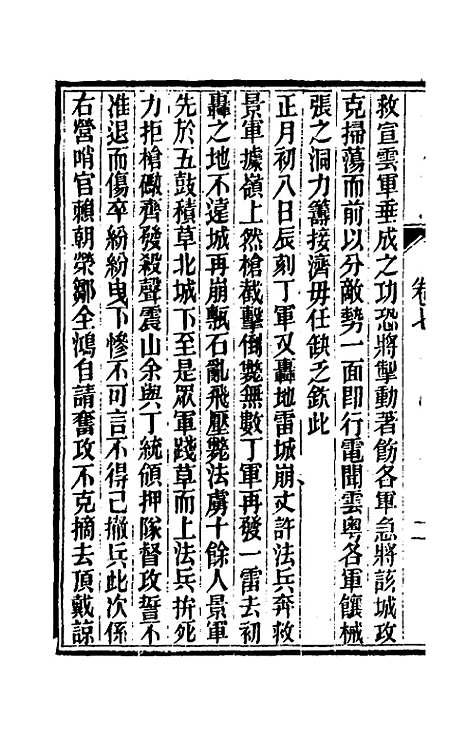 卷七
救宣雲軍垂成之功恐將掣動著飭各軍急將該城攻
克掃蕩而前以分敵勢一面即行電聞雲粵各軍餽械
張之洞力籌接濟毋任缺乏欽此
正月初八日辰刻丁軍又轟地雷城崩丈許法兵奔救
景軍據嶺上然槍截擊倒斃無數丁軍再發一雷去初
轟之地不遠城再崩甎石亂飛壓斃法虜十餘人景軍
先於五鼓積草北城下至是眾軍踐草而上法兵拚死
力拒槍礮齊發殺聲震山余與丁統領押隊督攻誓不
准退而傷卒紛紛曳下慘不可言不得已撤兵此次係
右營哨官賴朝榮鄒全鴻自請奮攻不克摘去頂戴諒